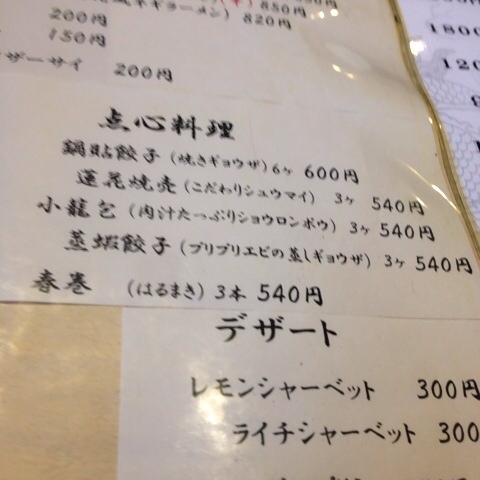 ネギラーメン) 820円
850円
200円
150円
ザーサイ 200円
点心料理
鍋貼餃子(焼きギョウザ)6ヶ 600円
蓮花焼売(こだわりシュウマイ) 3ヶ 540円
小籠包(肉汁たっぷりショウロンポウ) 3ヶ 540円
蒸蝦餃子(プリプリエビの蒸しギョウザ) 3ヶ 540円
春巻 (はるまき) 3本 540円
デザート
レモンシャーベット 300円
ライチシャーベット 300
1800
120